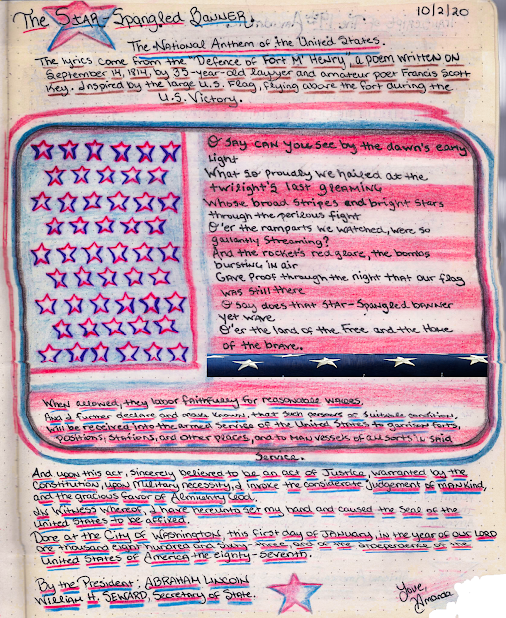 The STAR-Spangled BANNER.
10/2/20
The National Anthem of the United States.
The lyrics come from the "Defence of Fort M'Henry, a poem written ON
September 14, 1814, by 35-year-old lawyer and amateur poet Francis Scott
Key. Inspired by the large U.S. Flag, flying above the fort during the
U.S. Victory.
O' SAY CAN you see by the dawn's early
Light
What so proudly we hailed at the
twilight's last gleaming
Whose broad stripes and bright stars
through the perilous fight
O'er the ramparts we watched, were so
gallantly streaming?
And the rocket's red glare, the bombs
bursting in air
Gave proof through the night that our flag
was still there
O' say does that STAR-Spangled banner
yet wave
O'er the land of the Free and the Home
of the brave.
When allowed, they labor faithfully for reasonable wages.
And I further declare and make known, that such persons of suitable condition,
will be received into the armed service of the United States to garrison forts,
positions, stations, and other places, and to man vessels of all sorts in said
Service.
And upon this act, sincerely believed to be an act of Justice, warranted by the
Constitution, upon Military necessity, I invoke the considerate judgement of mankind,
and the gracious favor of Almighty God.
In Witness whereof, I have hereunto set my hand and caused the seal of the
United States to be affixed.
Done at the City of Washington, this first day of January, in the year of our LORD
one thousand eight hundred and sixty three, and of the independence of the
United States of America the eighty-seventh.
By the President: ABRAHAM LINCOLN
William H. SEWARD, Secretary of State.
Love,
Amanda